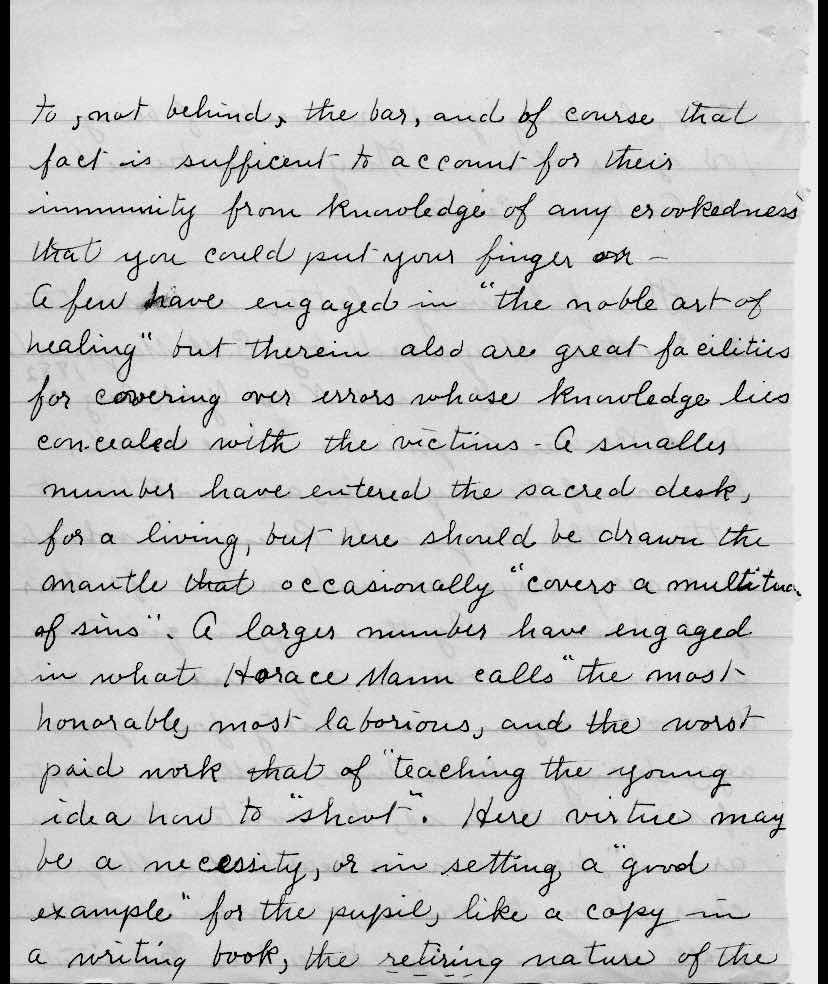 to, not behind, the bar, and of course that
fact is sufficent to account for their
immunity from knowledge of any crookedness
that you could put your finger on -
A few have engaged in "the noble art of
healing" but therein also are great facilities
for covering over errors whose knowledge lies
concealed with the victims - A smaller
number have entered the sacred desk,
for a living, but here should be drawn the
mantle that occasionally "covers a multitud
of sins". A larger number have engaged
in what Horace Mann calls "the most
honorable, most laborious, and the worst
paid work that of "teaching the young
idea how to "shoot". Here virtue may
be a necessity, or in setting a "good
example" for the pupil, like a copy in
a writing book, the retiring nature of the